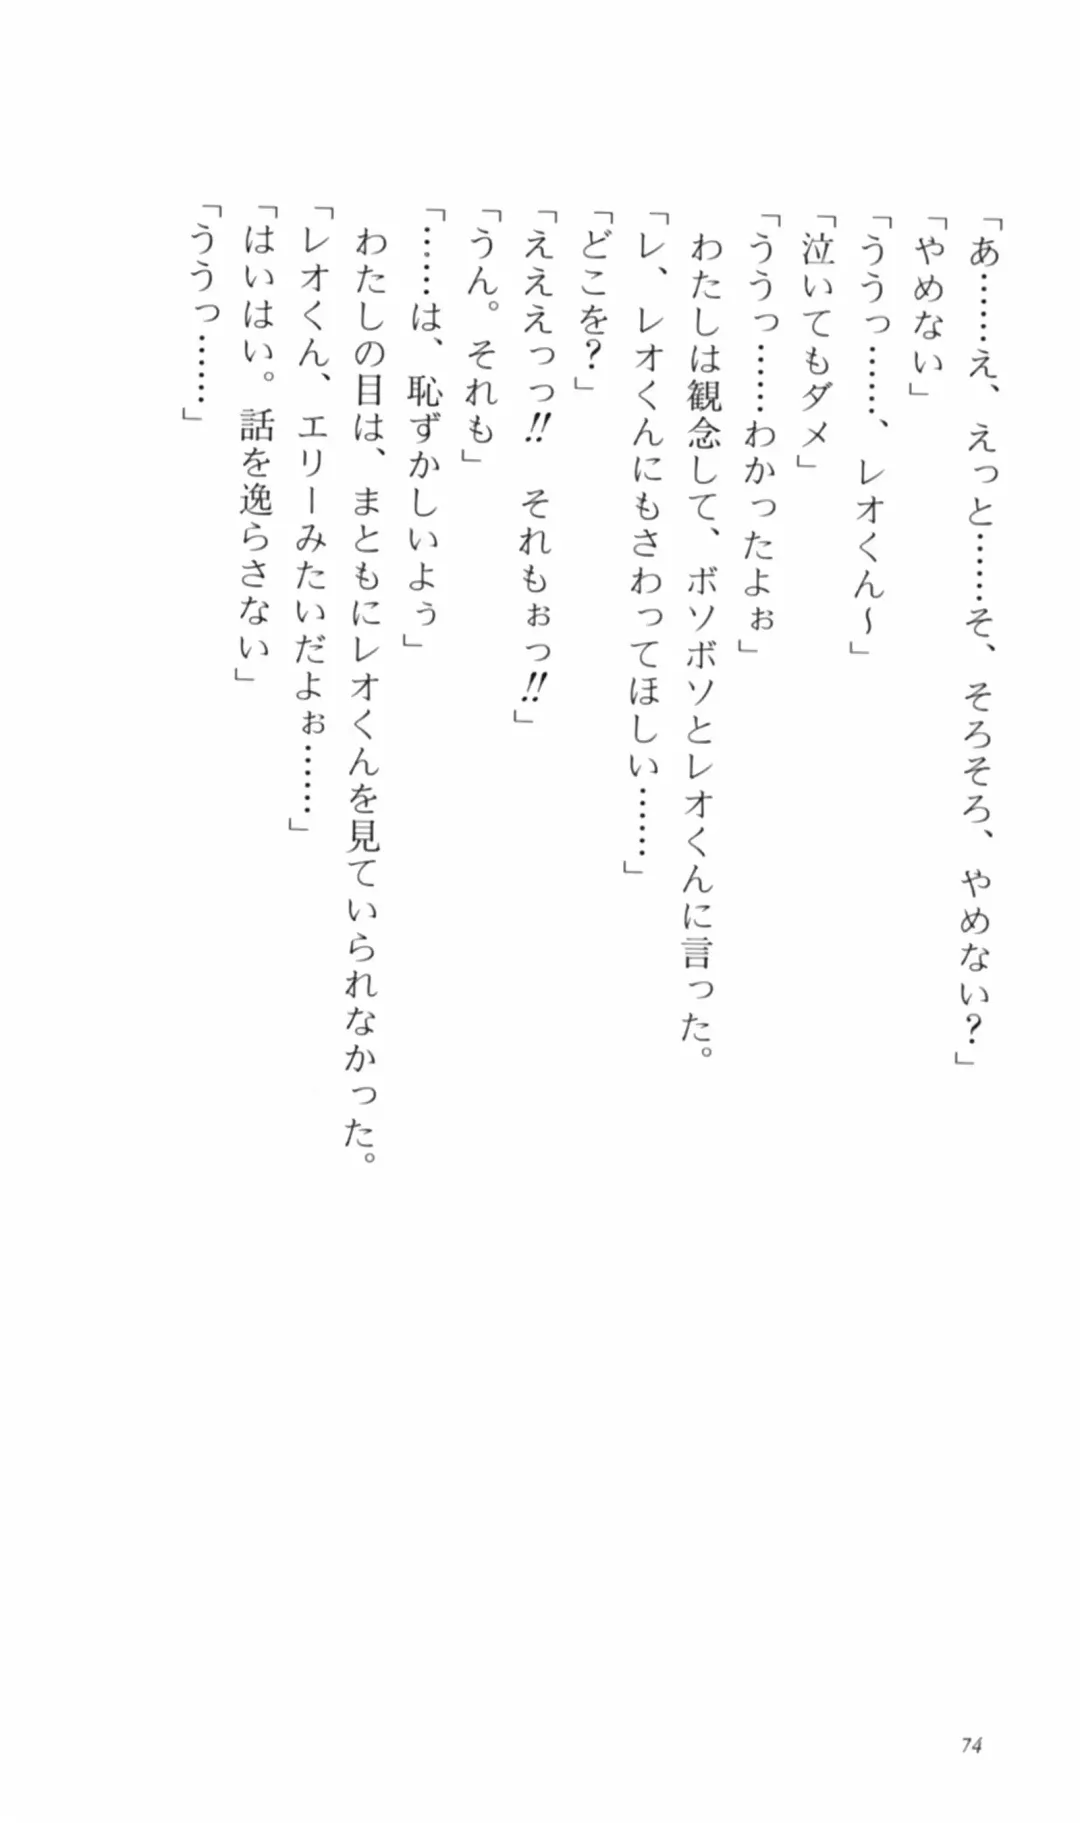 「あ……え、えっと……そ、そろそろ、やめない？」
「やめない」
「ううっ……、レオくん～」
「泣いてもダメ」
「ううっ……わかったよぉ」
わたしは観念して、ボソボソとレオくんに言った。
「レ、レオくんにもさわってほしい……」
「どこを？」
「えええっっ!!　それもぉっ!!」
「うん。それも」
「……は、恥ずかしいよぅ」
わたしの目は、まともにレオくんを見ていられなかった。
「レオくん、エリーみたいだよぉ……」
「はいはい。話を逸らさない」
「ううっ……」
74